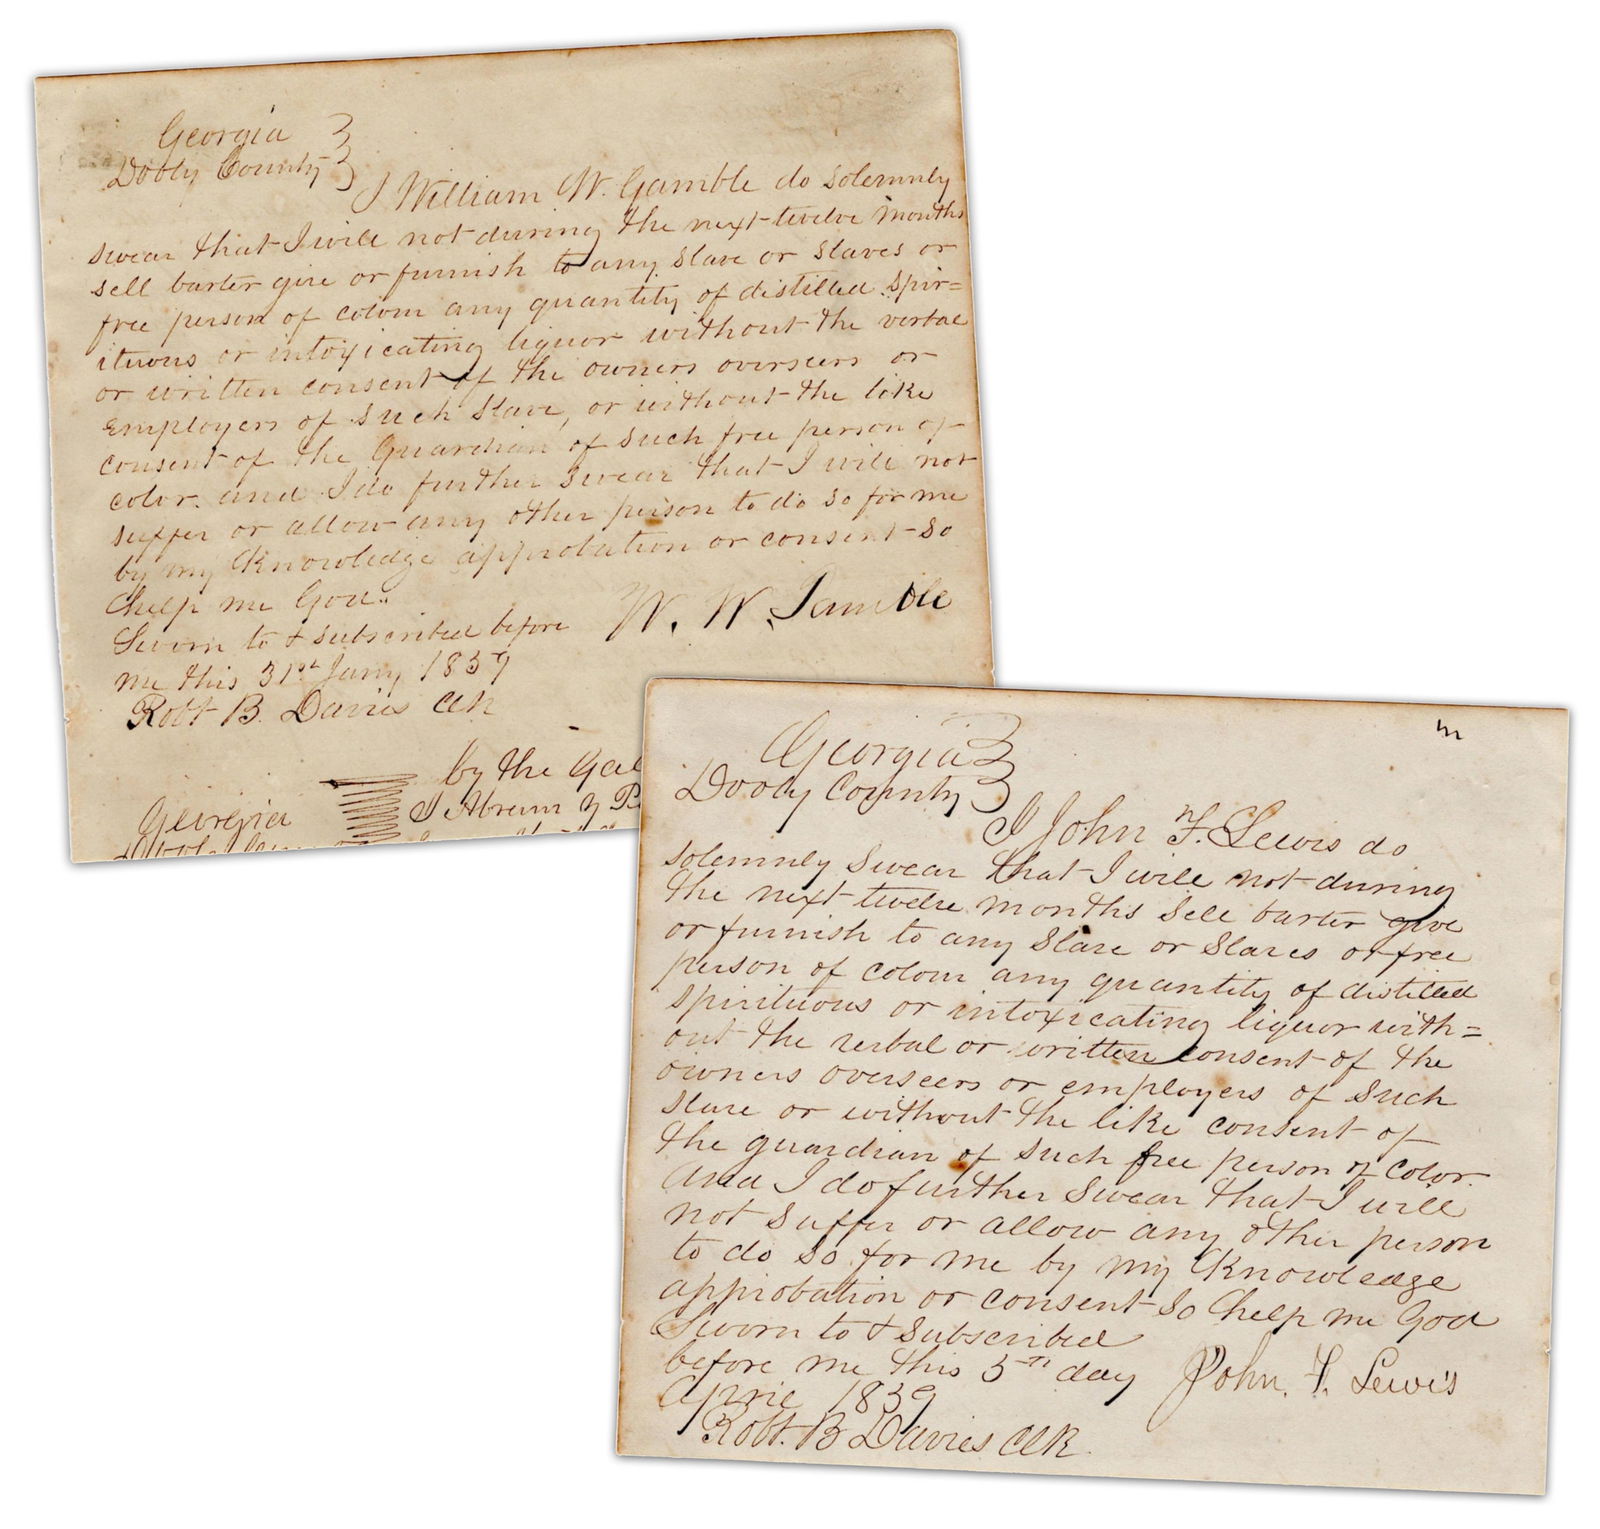 Georgia
Dooly County
I William W. Gamble do solemnly
swear that I will not during the next twelve months
sell barter give or furnish to any slave or slaves or
free person of colour any quantity of distilled spir=
ituous or intoxicating liquor without the verbal
or written consent of the owners overseers or
employers of such slave, or without the like
consent of the Guardian of such free person of
color. and I do further swear that I will not
suffer or allow any other person to do so for me
by my knowledge approbation or consent so
help me God..
Sworn to & subscribed before
me this 31st Jany 1839
W. W. Gamble
Robt B. Davies Clk
by the
Georgia
I Abram
Georgia
Dooly County
I John F. Lewis do
solemnly swear that I will not during
the next twelve months sell barter give
or furnish to any slave or slaves or free
person of colour any quantity of distilled
spirituous or intoxicating liquor with=
out the verbal or written consent of the
owners overseers or employers of such
slave or without the like consent of
the guardian of such free person of color.
And I do further swear that I will
not suffer or allow any other person
to do so for me by my knowledge
approbation or consent so help me God
Sworn to & subscribed
before me this 5th day
April 1839
John. F. Lewis
Robt. B Davies Clk